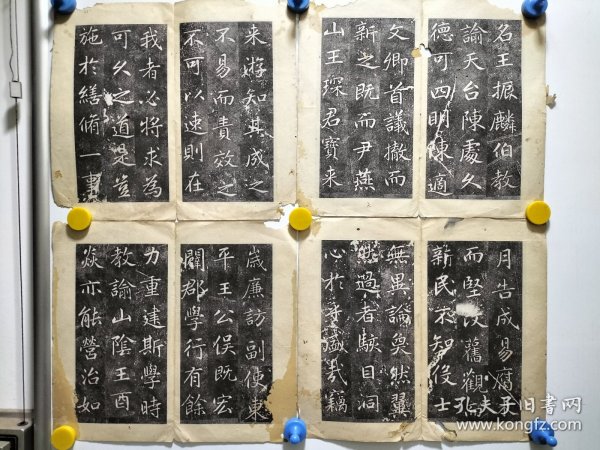 名王振麟伯教
諭天台陳處久
德可四明陳適
文卿首議撤而
新之既而尹燕
山王琛君寶来
来游知其成之
不易而責效之
不可以速則在
我者必将求為
可久之道是豈
施於繕脩一事
月告成易腐
而堅改舊觀
新民求知後士
無異論奐然翼
然過者駭目洞
心於
歲廉訪副使東
平王公俣既宏
闢郡學行有餘
力重建斯學時
教諭山陰王酉
焱亦能營治如
孔夫子旧书网
www.kongfz.com